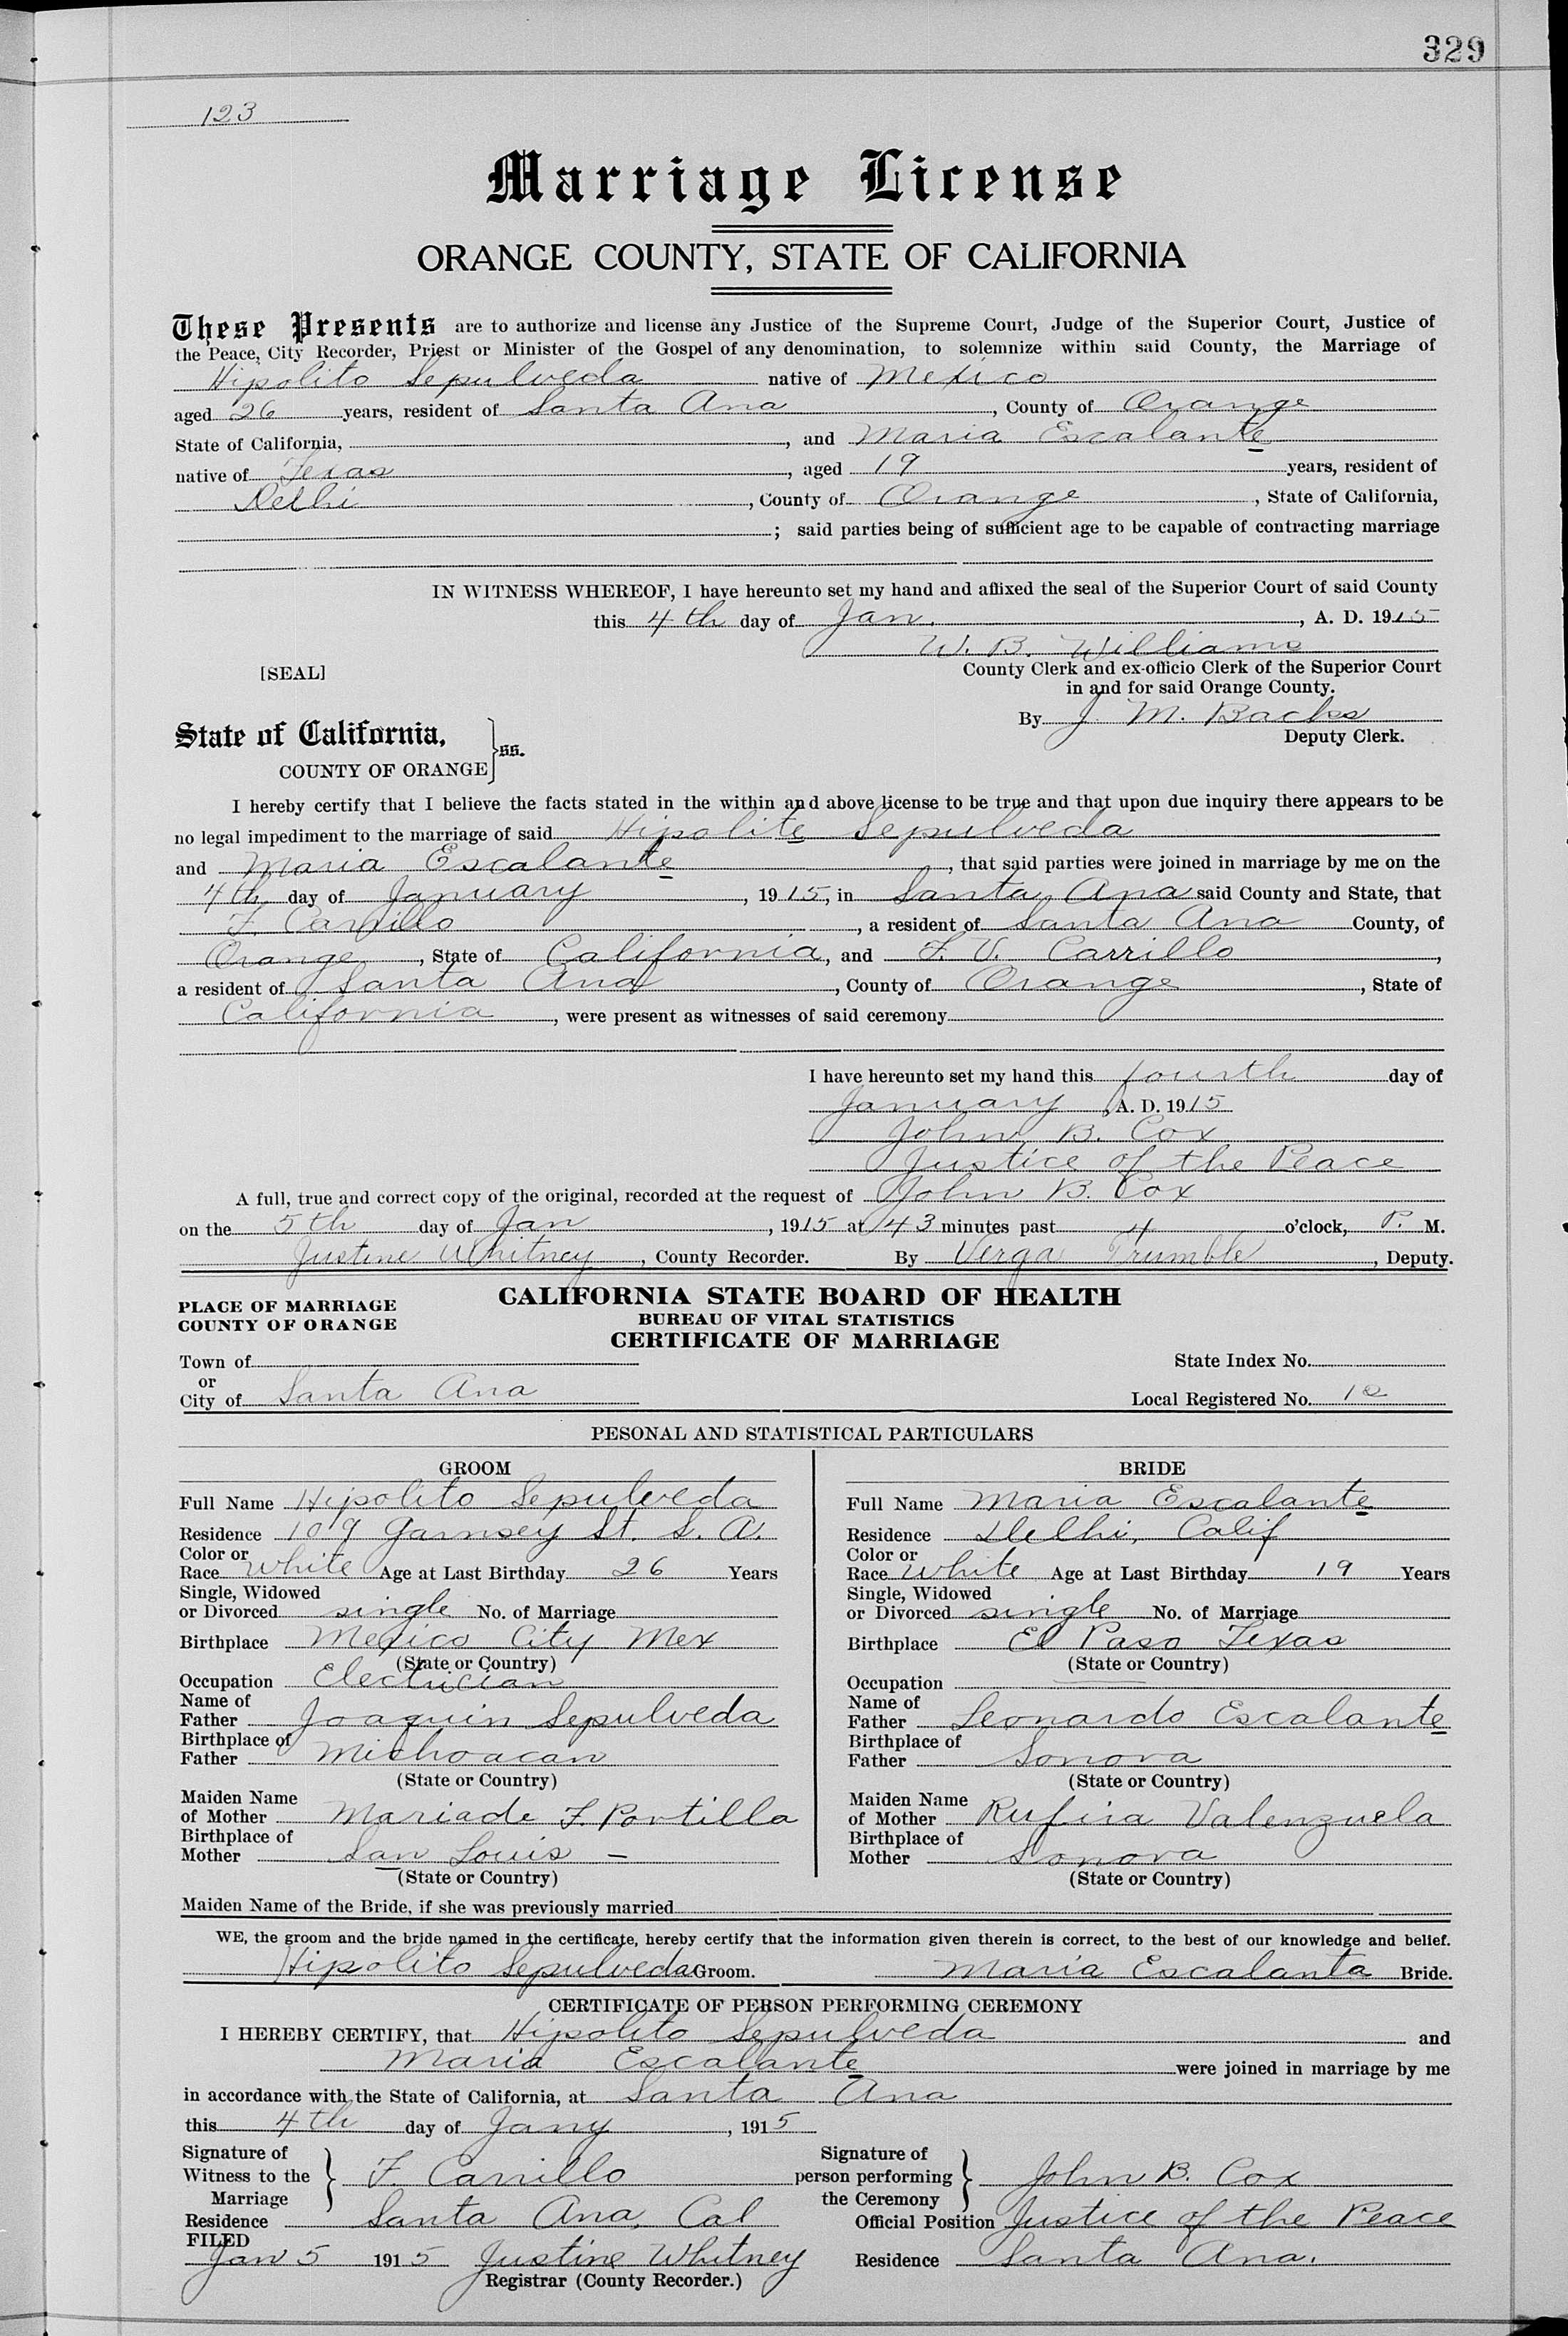 329
123
Marriage License
ORANGE COUNTY, STATE OF CALIFORNIA
These Presents are to authorize and license any Justice of the Supreme Court, Judge of the Superior Court, Justice of
the Peace, City Recorder, Priest or Minister of the Gospel of any denomination, to solemnize within said County, the Marriage of
Hipolito Sepulveda native of Mexico
aged 26 years, resident of Santa Ana, County of Orange
State of California, , and Maria Escalante
native of Texas, aged 19 years, resident of
Delhi, County of Orange, State of California,
; said parties being of sufficient age to be capable of contracting marriage
IN WITNESS WHEREOF, I have hereunto set my hand and affixed the seal of the Superior Court of said County
this 4th day of Jan., A. D. 1915
W. B. Williams
[SEAL] County Clerk and ex-officio Clerk of the Superior Court
in and for said Orange County.
By J. M. Backs
Deputy Clerk.
State of California,
COUNTY OF ORANGE } ss.
I hereby certify that I believe the facts stated in the within and above license to be true and that upon due inquiry there appears to be
no legal impediment to the marriage of said Hipolite Sepulveda
and Maria Escalante, that said parties were joined in marriage by me on the
4th day of January, 1915, in Santa Ana said County and State, that
F. Carrillo, a resident of Santa Ana County, of
Orange, State of California, and F. V. Carrillo,
a resident of Santa Ana, County of Orange, State of
California, were present as witnesses of said ceremony
I have hereunto set my hand this fourth day of
January, A. D. 1915
John B. Cox
Justice of the Peace
A full, true and correct copy of the original, recorded at the request of John B. Cox
on the 5th day of Jan, 1915 at 43 minutes past 4 o'clock, P. M.
Justine Whitney, County Recorder. By Verga Trumble, Deputy.
PLACE OF MARRIAGE
COUNTY OF ORANGE
CALIFORNIA STATE BOARD OF HEALTH
BUREAU OF VITAL STATISTICS
CERTIFICATE OF MARRIAGE
Town of
or
City of Santa Ana
State Index No.
Local Registered No. 10
PESONAL AND STATISTICAL PARTICULARS
GROOM
Full Name Hipolito Sepulveda
Residence 109 Garnsey St. S. A.
Color or
Race White Age at Last Birthday 26 Years
Single, Widowed
or Divorced single No. of Marriage
Birthplace Mexico City Mex
(State or Country)
Occupation Electrician
Name of
Father Joaquin Sepulveda
Birthplace of
Father Michoacan
(State or Country)
Maiden Name
of Mother Mariade F. Portilla
Birthplace of
Mother San Louis –
(State or Country)
BRIDE
Full Name Maria Escalante
Residence Delhi, Calif
Color or
Race White Age at Last Birthday 19 Years
Single, Widowed
or Divorced single No. of Marriage
Birthplace El Paso Texas
(State or Country)
Occupation
Name of
Father Leonardo Escalante
Birthplace of
Father Sonora
(State or Country)
Maiden Name
of Mother Rufina Valenzuela
Birthplace of
Mother Sonora
(State or Country)
Maiden Name of the Bride, if she was previously married
WE, the groom and the bride named in the certificate, hereby certify that the information given therein is correct, to the best of our knowledge and belief.
Hipolito Sepulveda Groom. Maria Escalanta Bride.
CERTIFICATE OF PERSON PERFORMING CEREMONY
I HEREBY CERTIFY, that Hipolito Sepulveda and
Maria Escalante were joined in marriage by me
in accordance with the State of California, at Santa Ana
this 4th day of Jany, 1915
Signature of
Witness to the
Marriage } F. Carrillo
Residence Santa Ana, Cal
FILED
Jan 5 1915 Justine Whitney
Registrar (County Recorder.)
Signature of
person performing
the Ceremony } John B. Cox
Official Position Justice of the Peace
Residence Santa Ana.